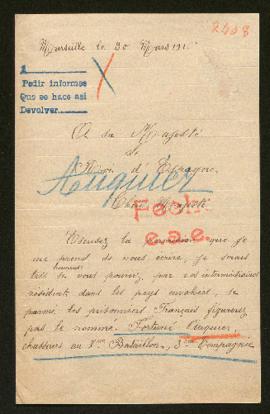 2408
Marseille le 30 Mars 191
A
Pedir informes
Que se hace asi
Devolver
A Sa Majesté
Le
Roi d'Espagne,
Auguier
Chère Majesté
Fech
e.a.e.
Excusez la permission que je
me prend de vous écrire, je
si vous pourriez, par vos intermédiaires
résidents dans les pays envahis, si
parmi les prisonniers Français figurerez
pas le nommé. Fortuné Auguier,
chasseurs au Bataillon, 3e Compagnie